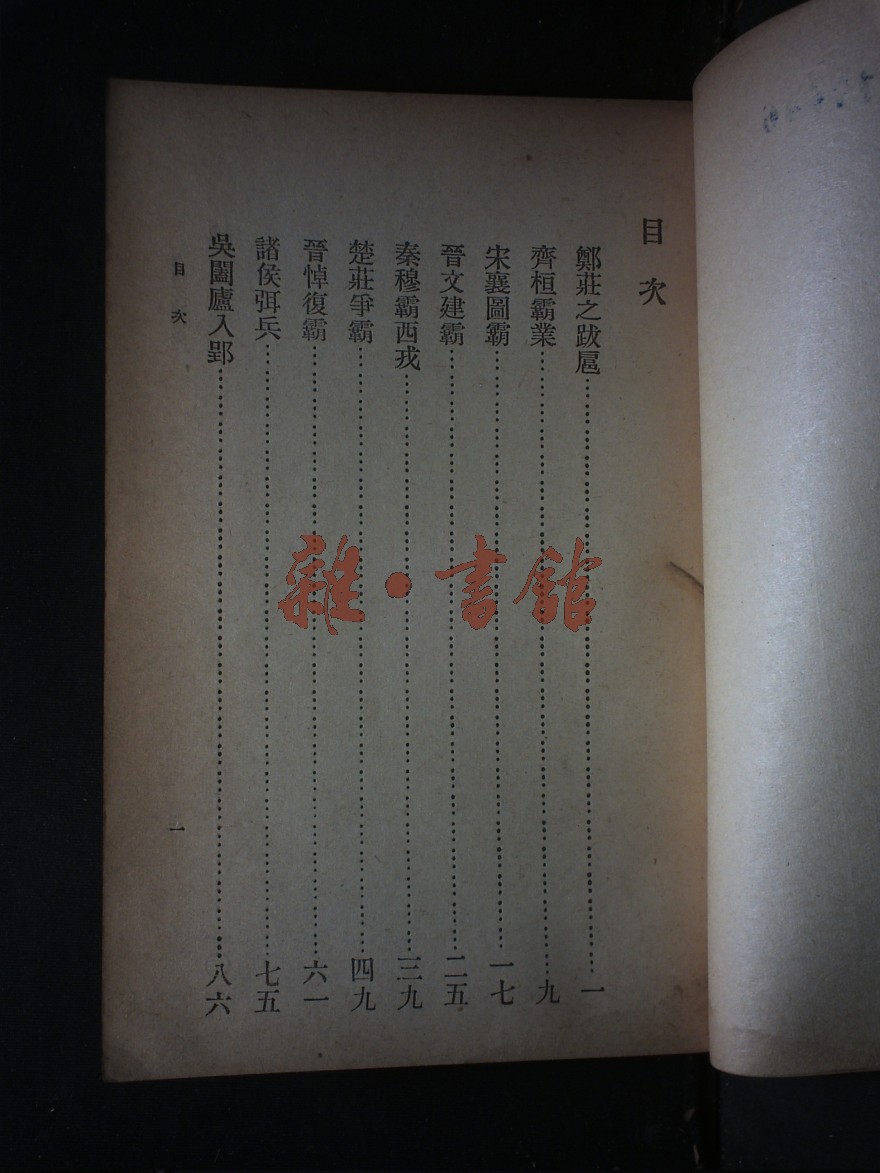 目次
鄭莊之跋扈……一
齊桓霸業……九
宋襄圖霸……一七
晉文建霸……二五
秦穆霸西戎……三九
楚莊爭霸……四九
晉悼復霸……六一
諸侯弭兵……七五
吳闔廬入郢……八六
目次
一
雜·書館